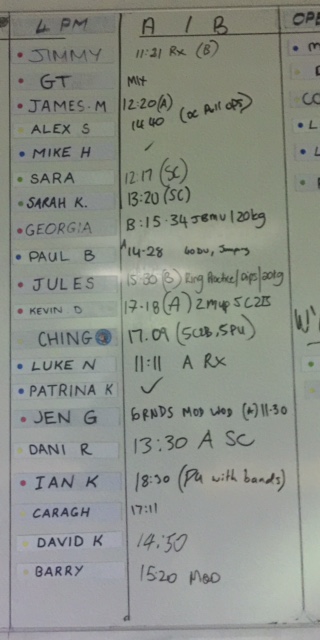 4 PM A / B OPE
JIMMY 11:21 Rx (B)
GT MIX
JAMES.M 12:20 (A)
14:40 (OC Pull ups)
ALEX S
MIKE H ✓
SARA 12:17 (SC)
SARAH K. 13:20 (SC)
GEORGIA B: 15.34 /20kg
PAUL B A 14-28
JULES 15:30 (B) Ring /Dips/20kg
KEVIN D 17.18 (A) 2 Mup SC2B
CHING 17.09 (SC2B, SPU)
LUKE N 11:11 A RX
PATRINA K ✓
JEN G 6RNDS MOD WOD (A) 11.30
DANI R 13:30 A SC
IAN K 18:30 (PU with bands)
CARAGH 17:11
DAVID K 14:50
BARRY 15:20 MOD